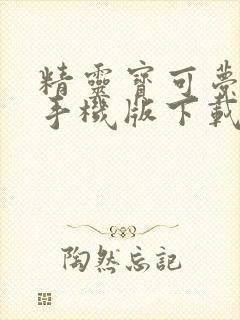 精靈寶可夢
手機版下載
陶然忘記